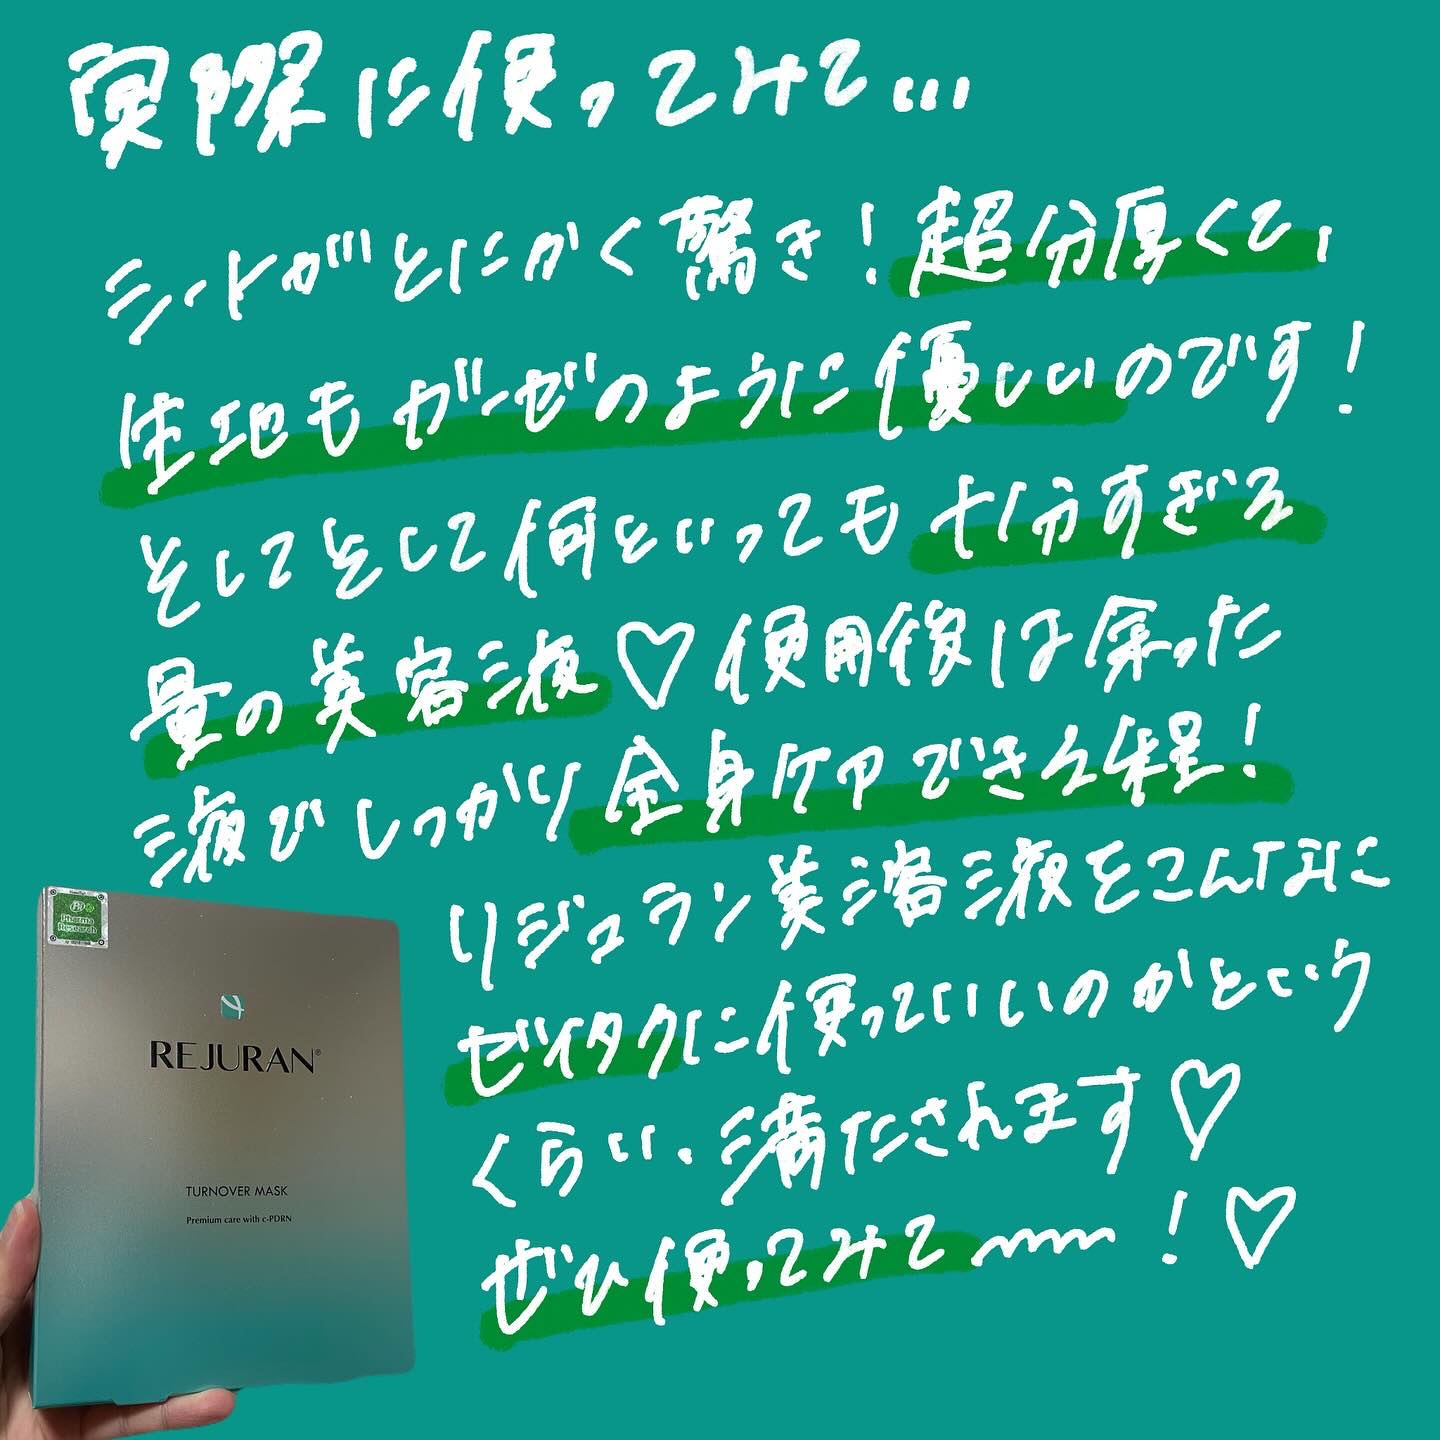 実際に使ってみて...
シートがとにかく驚き！超分厚くて、
生地もガーゼのように優しいのです！
そしてそして何といっても十分すぎる
量の美容液♡使用後は余った
液でしっかり全身ケアできる程！
リジュラン美容液をこんなに
ゼイタクに使っていいのかという
くらい、満たされます♡
ぜひ使ってみて〜！♡
Pharma
Research
REJURAN®
TURNOVER MASK
Premium care with c-PDRN